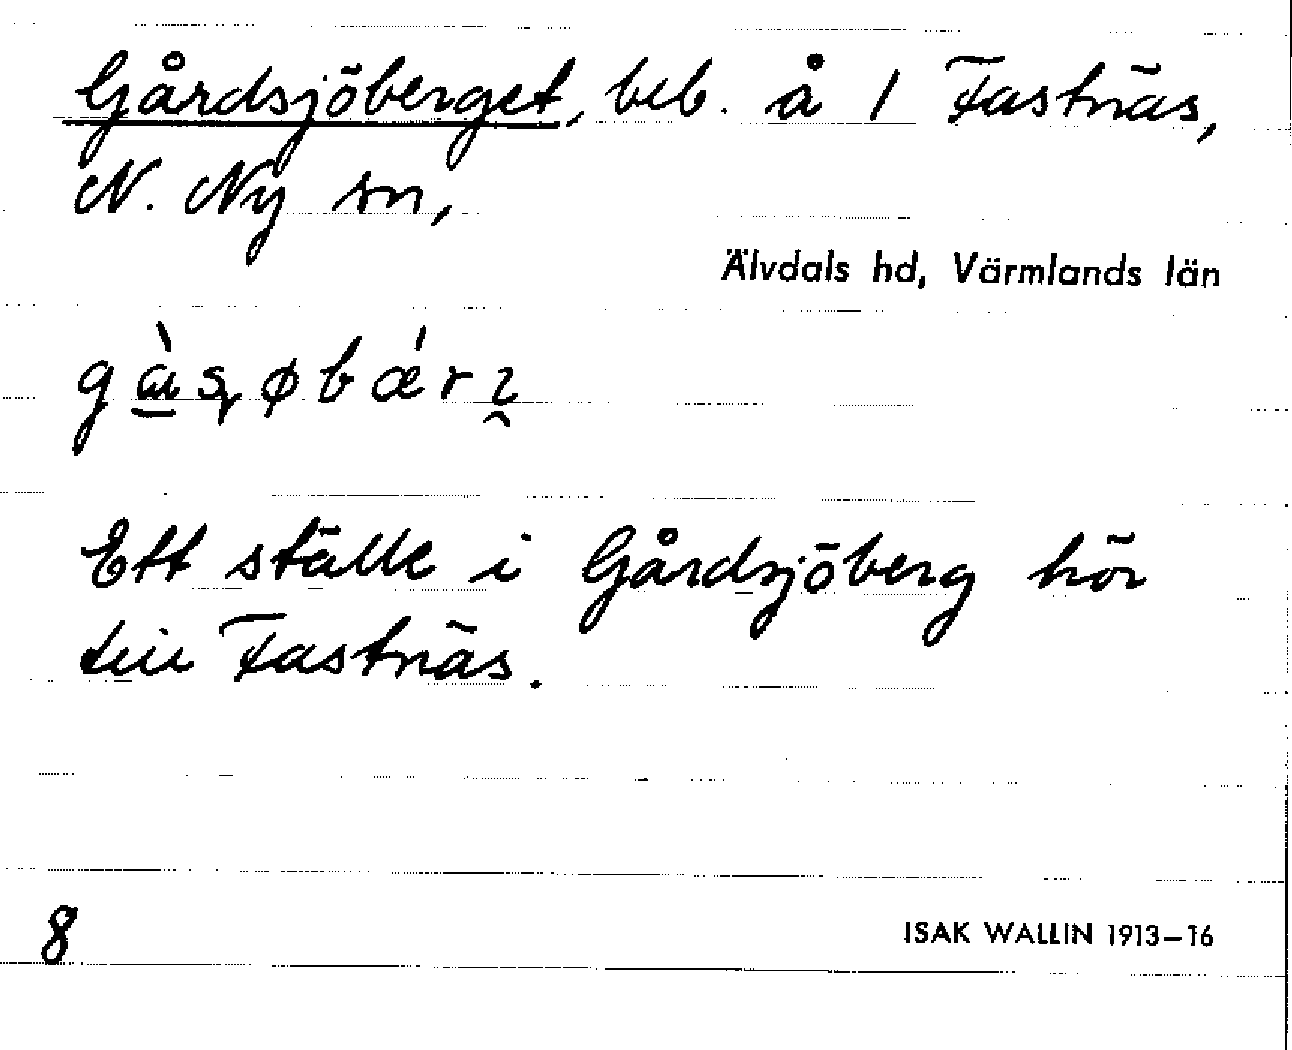 Gårdsjöberget, beb. å 1 Fastnäs,
N. Ny sn,
Älvdals hd, Värmlands län
Ett ställe i Gårdsjöberg hör
till Fastnäs.
8
ISAK WALLIN 1913–16